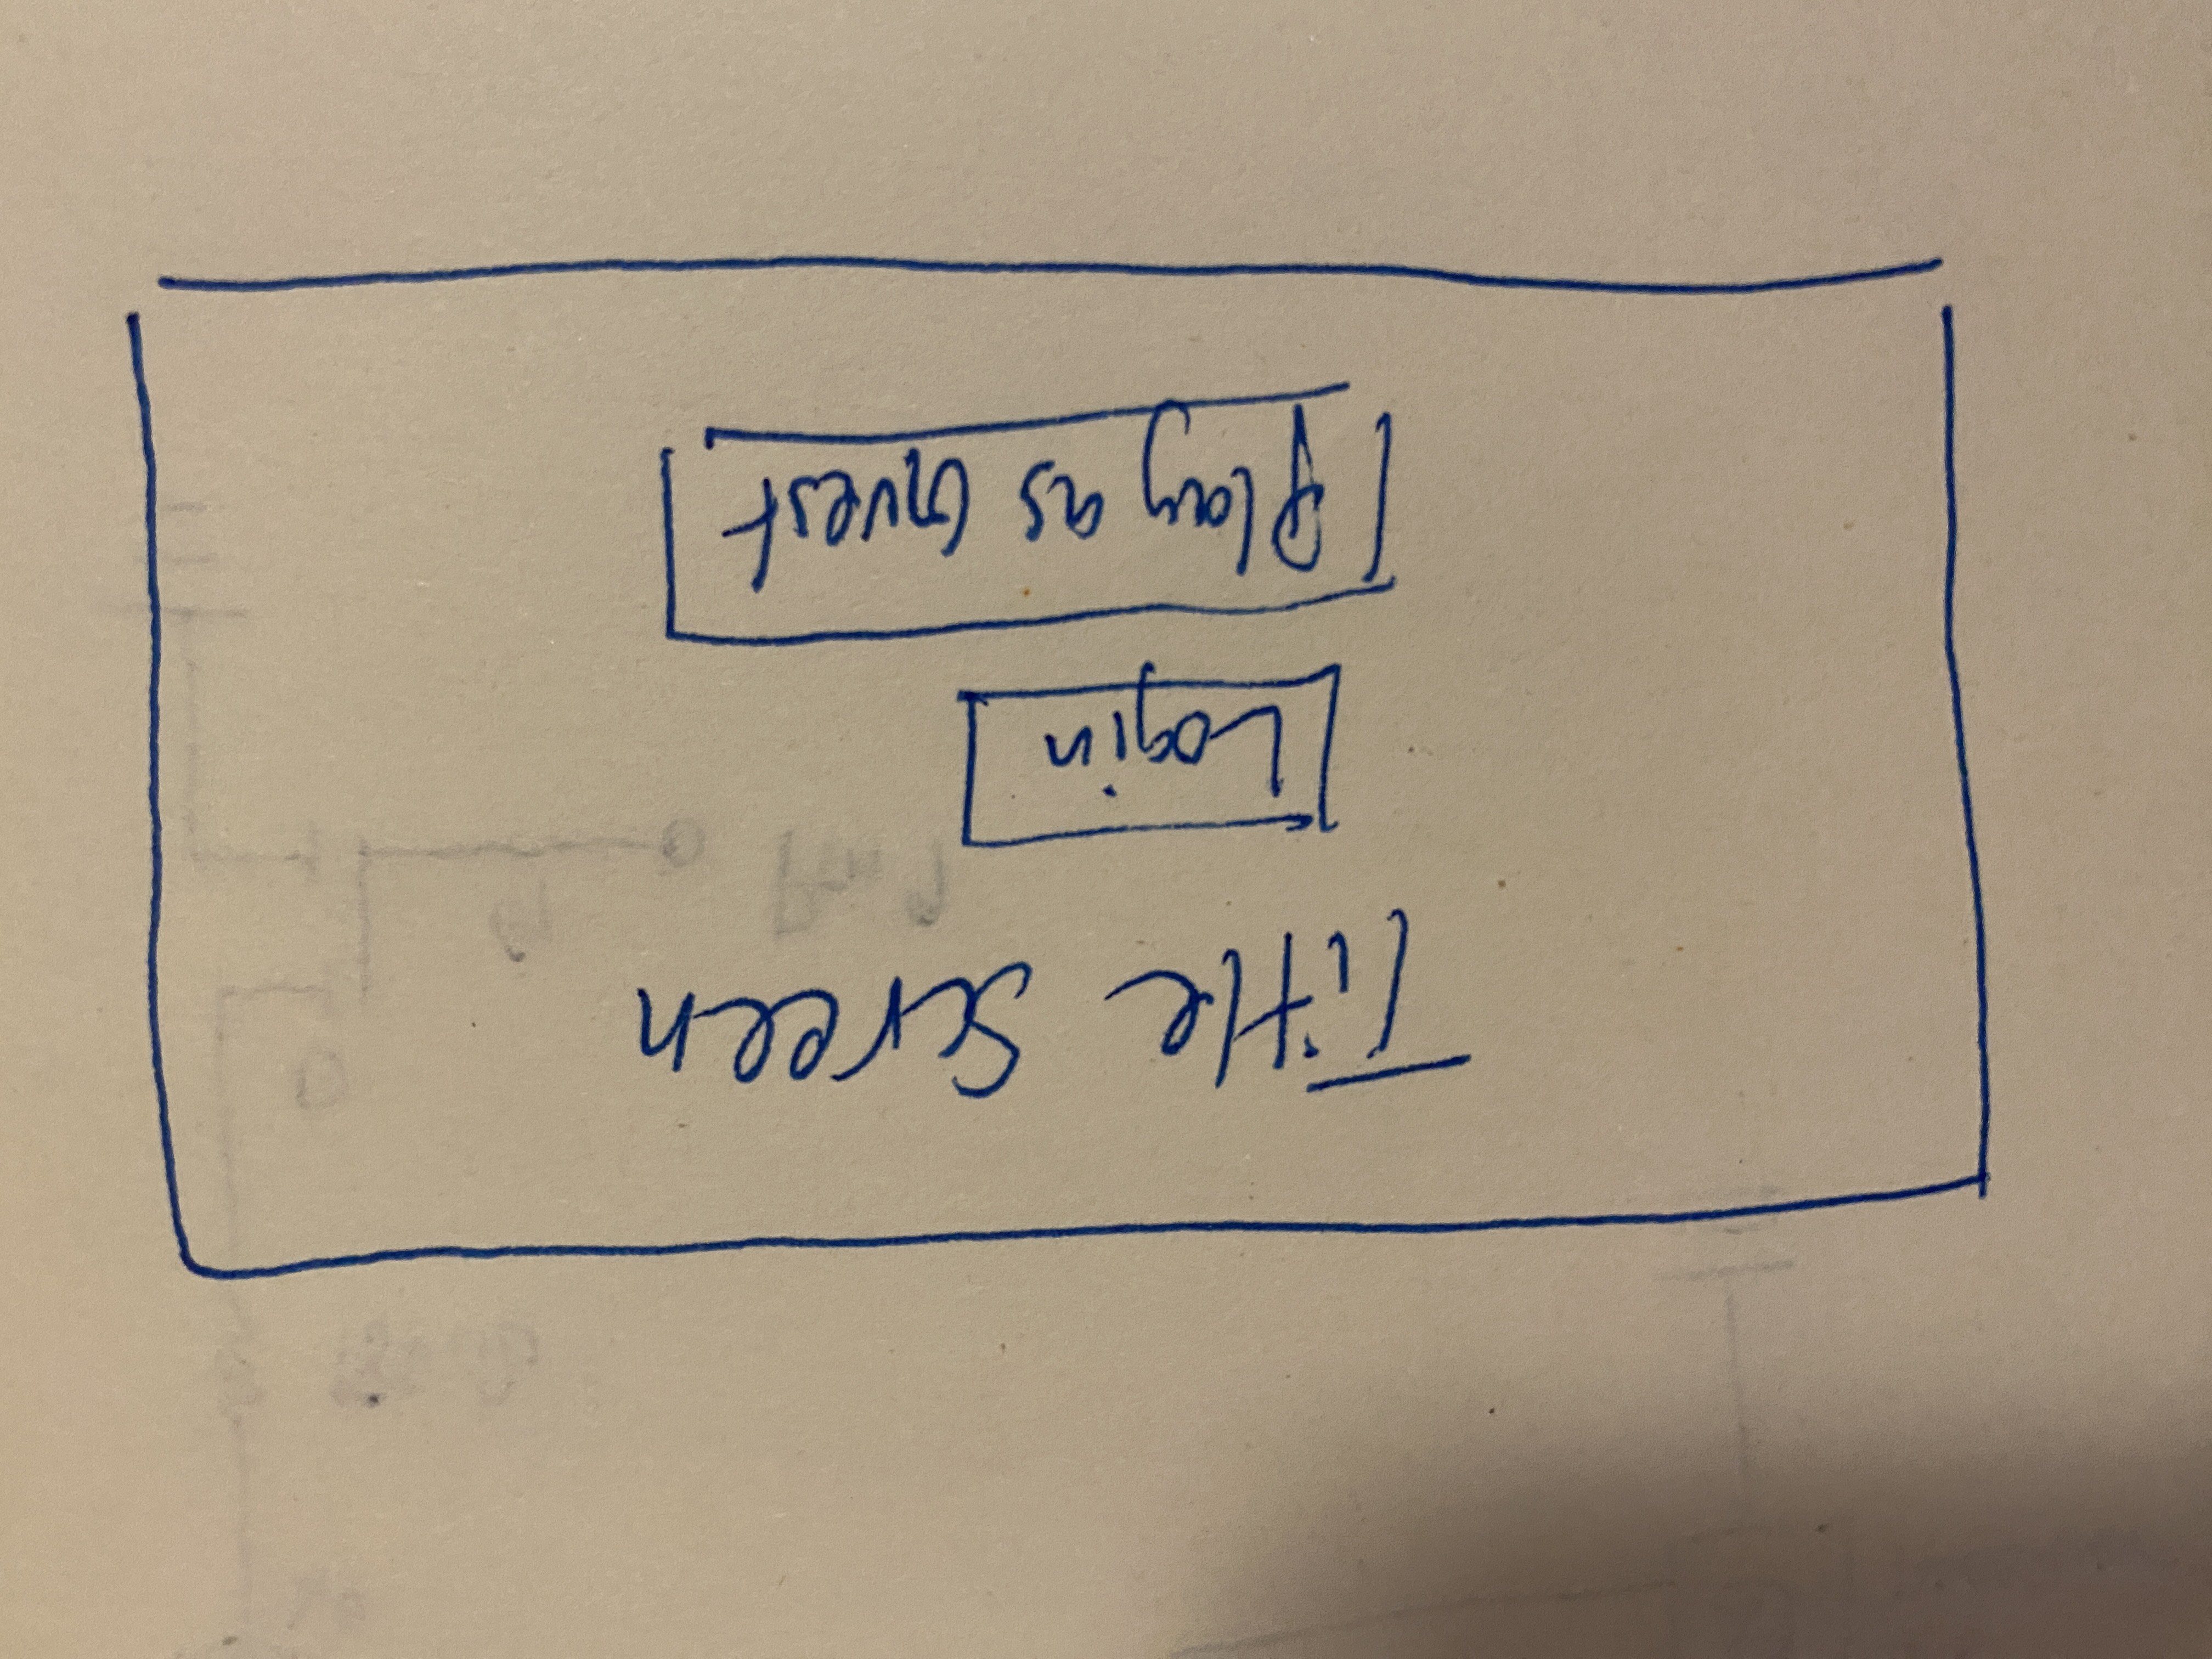 Title Screen
Login
Play as Guest